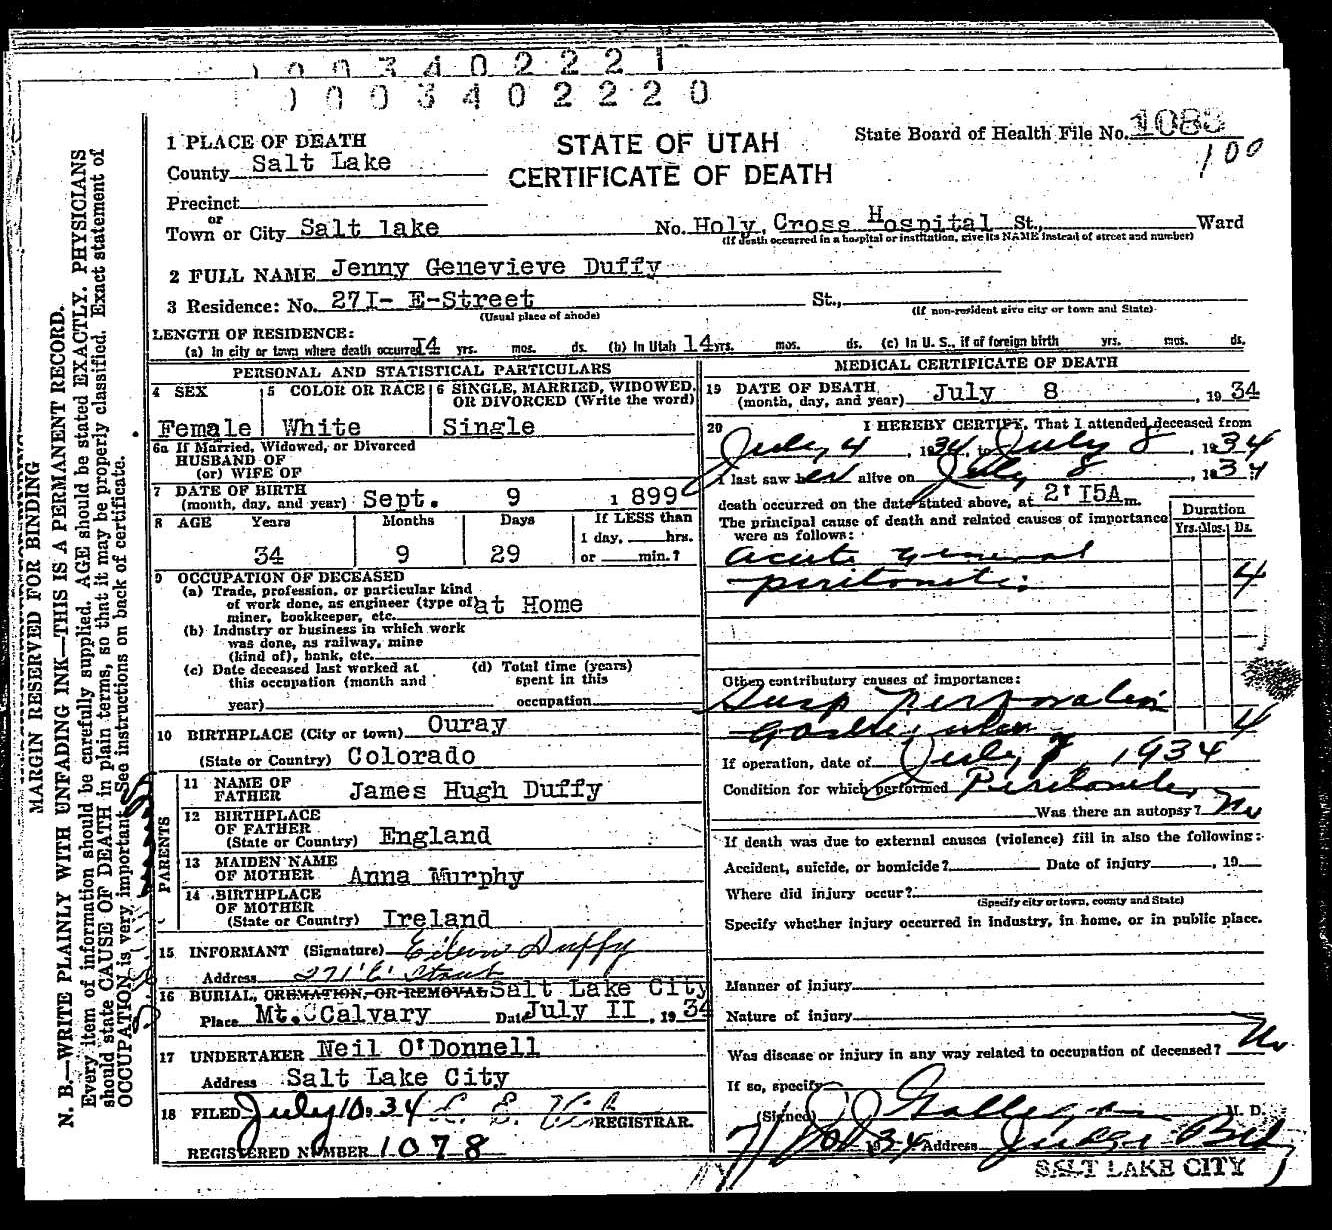 1003402221
1003402220
MARGIN RESERVED FOR BINDING
N. B.—WRITE PLAINLY WITH UNFADING INK—THIS IS A PERMANENT RECORD.
Every item of information should be carefully supplied. AGE should be stated EXACTLY. PHYSICIANS
should state CAUSE OF DEATH in plain terms, so that it may be properly classified. Exact statement of
OCCUPATION is very important. See instructions on back of certificate.
STATE OF UTAH
CERTIFICATE OF DEATH
State Board of Health File No. 1083
100
1 PLACE OF DEATH
County Salt Lake
Precinct
or
Town or City Salt lake No. Holy Cross Hospital St., Ward
(If death occurred in a hospital or institution, give its NAME instead of street and number)
2 FULL NAME Jenny Genevieve Duffy
3 Residence: No. 27I- E-Street St.,
(Usual place of abode) (If non-resident give city or town and State)
LENGTH OF RESIDENCE:
(a) In city or town where death occurred I4 yrs. mos. ds. (b) In Utah 14 yrs. mos. ds. (c) In U. S., if of foreign birth yrs. mos. ds.
PERSONAL AND STATISTICAL PARTICULARS
4 SEX 5 COLOR OR RACE 6 SINGLE, MARRIED, WIDOWED,
OR DIVORCED (Write the word)
Female White Single
6a If Married, Widowed, or Divorced
HUSBAND OF
(or) WIFE OF
7 DATE OF BIRTH
(month, day, and year) Sept. 9 1899
8 AGE Years Months Days If LESS than
1 day, hrs.
34 9 29 or min.?
9 OCCUPATION OF DECEASED
(a) Trade, profession, or particular kind
of work done, as engineer (type of) at Home
miner, bookkeeper, etc.
(b) Industry or business in which work
was done, as railway, mine
(kind of), bank, etc.
(c) Date deceased last worked at (d) Total time (years)
this occupation (month and spent in this
year) occupation
10 BIRTHPLACE (City or town) Ouray
(State or Country) Colorado
PARENTS
11 NAME OF
FATHER James Hugh Duffy
12 BIRTHPLACE
OF FATHER
(State or Country) England
13 MAIDEN NAME
OF MOTHER Anna Murphy
14 BIRTHPLACE
OF MOTHER
(State or Country) Ireland
15 INFORMANT (Signature) Eileen Duffy
Address 271 'E' Street
16 BURIAL, CREMATION, OR REMOVAL Salt Lake City
Place Mt. Calvary Date July II, 1934
17 UNDERTAKER Neil O'Donnell
Address Salt Lake City
18 FILED July 10 34
REGISTRAR.
REGISTERED NUMBER 1078
MEDICAL CERTIFICATE OF DEATH
19 DATE OF DEATH
(month, day, and year) July 8, 1934
20 I HEREBY CERTIFY, That I attended deceased from
July 4, 1934, to July 8, 1934
I last saw her alive on July 8, 1934
death occurred on the date stated above, at 2' I5A m.
The principal cause of death and related causes of importance
were as follows:
Duration
Yrs. Mos. Ds.
Acute General
peritonitis 4
Other contributory causes of importance:
4
If operation, date of July 7, 1934
Condition for which performed Peritonitis
Was there an autopsy? No
If death was due to external causes (violence) fill in also the following:
Accident, suicide, or homicide? Date of injury, 19
Where did injury occur?
(Specify city or town, county and State)
Specify whether injury occurred in industry, in home, or in public place.
Manner of injury
Nature of injury
Was disease or injury in any way related to occupation of deceased? No
If so, specify
(Signed) J J Galligan M. D.
7/10 1934 Address Judge Bldg
SALT LAKE CITY